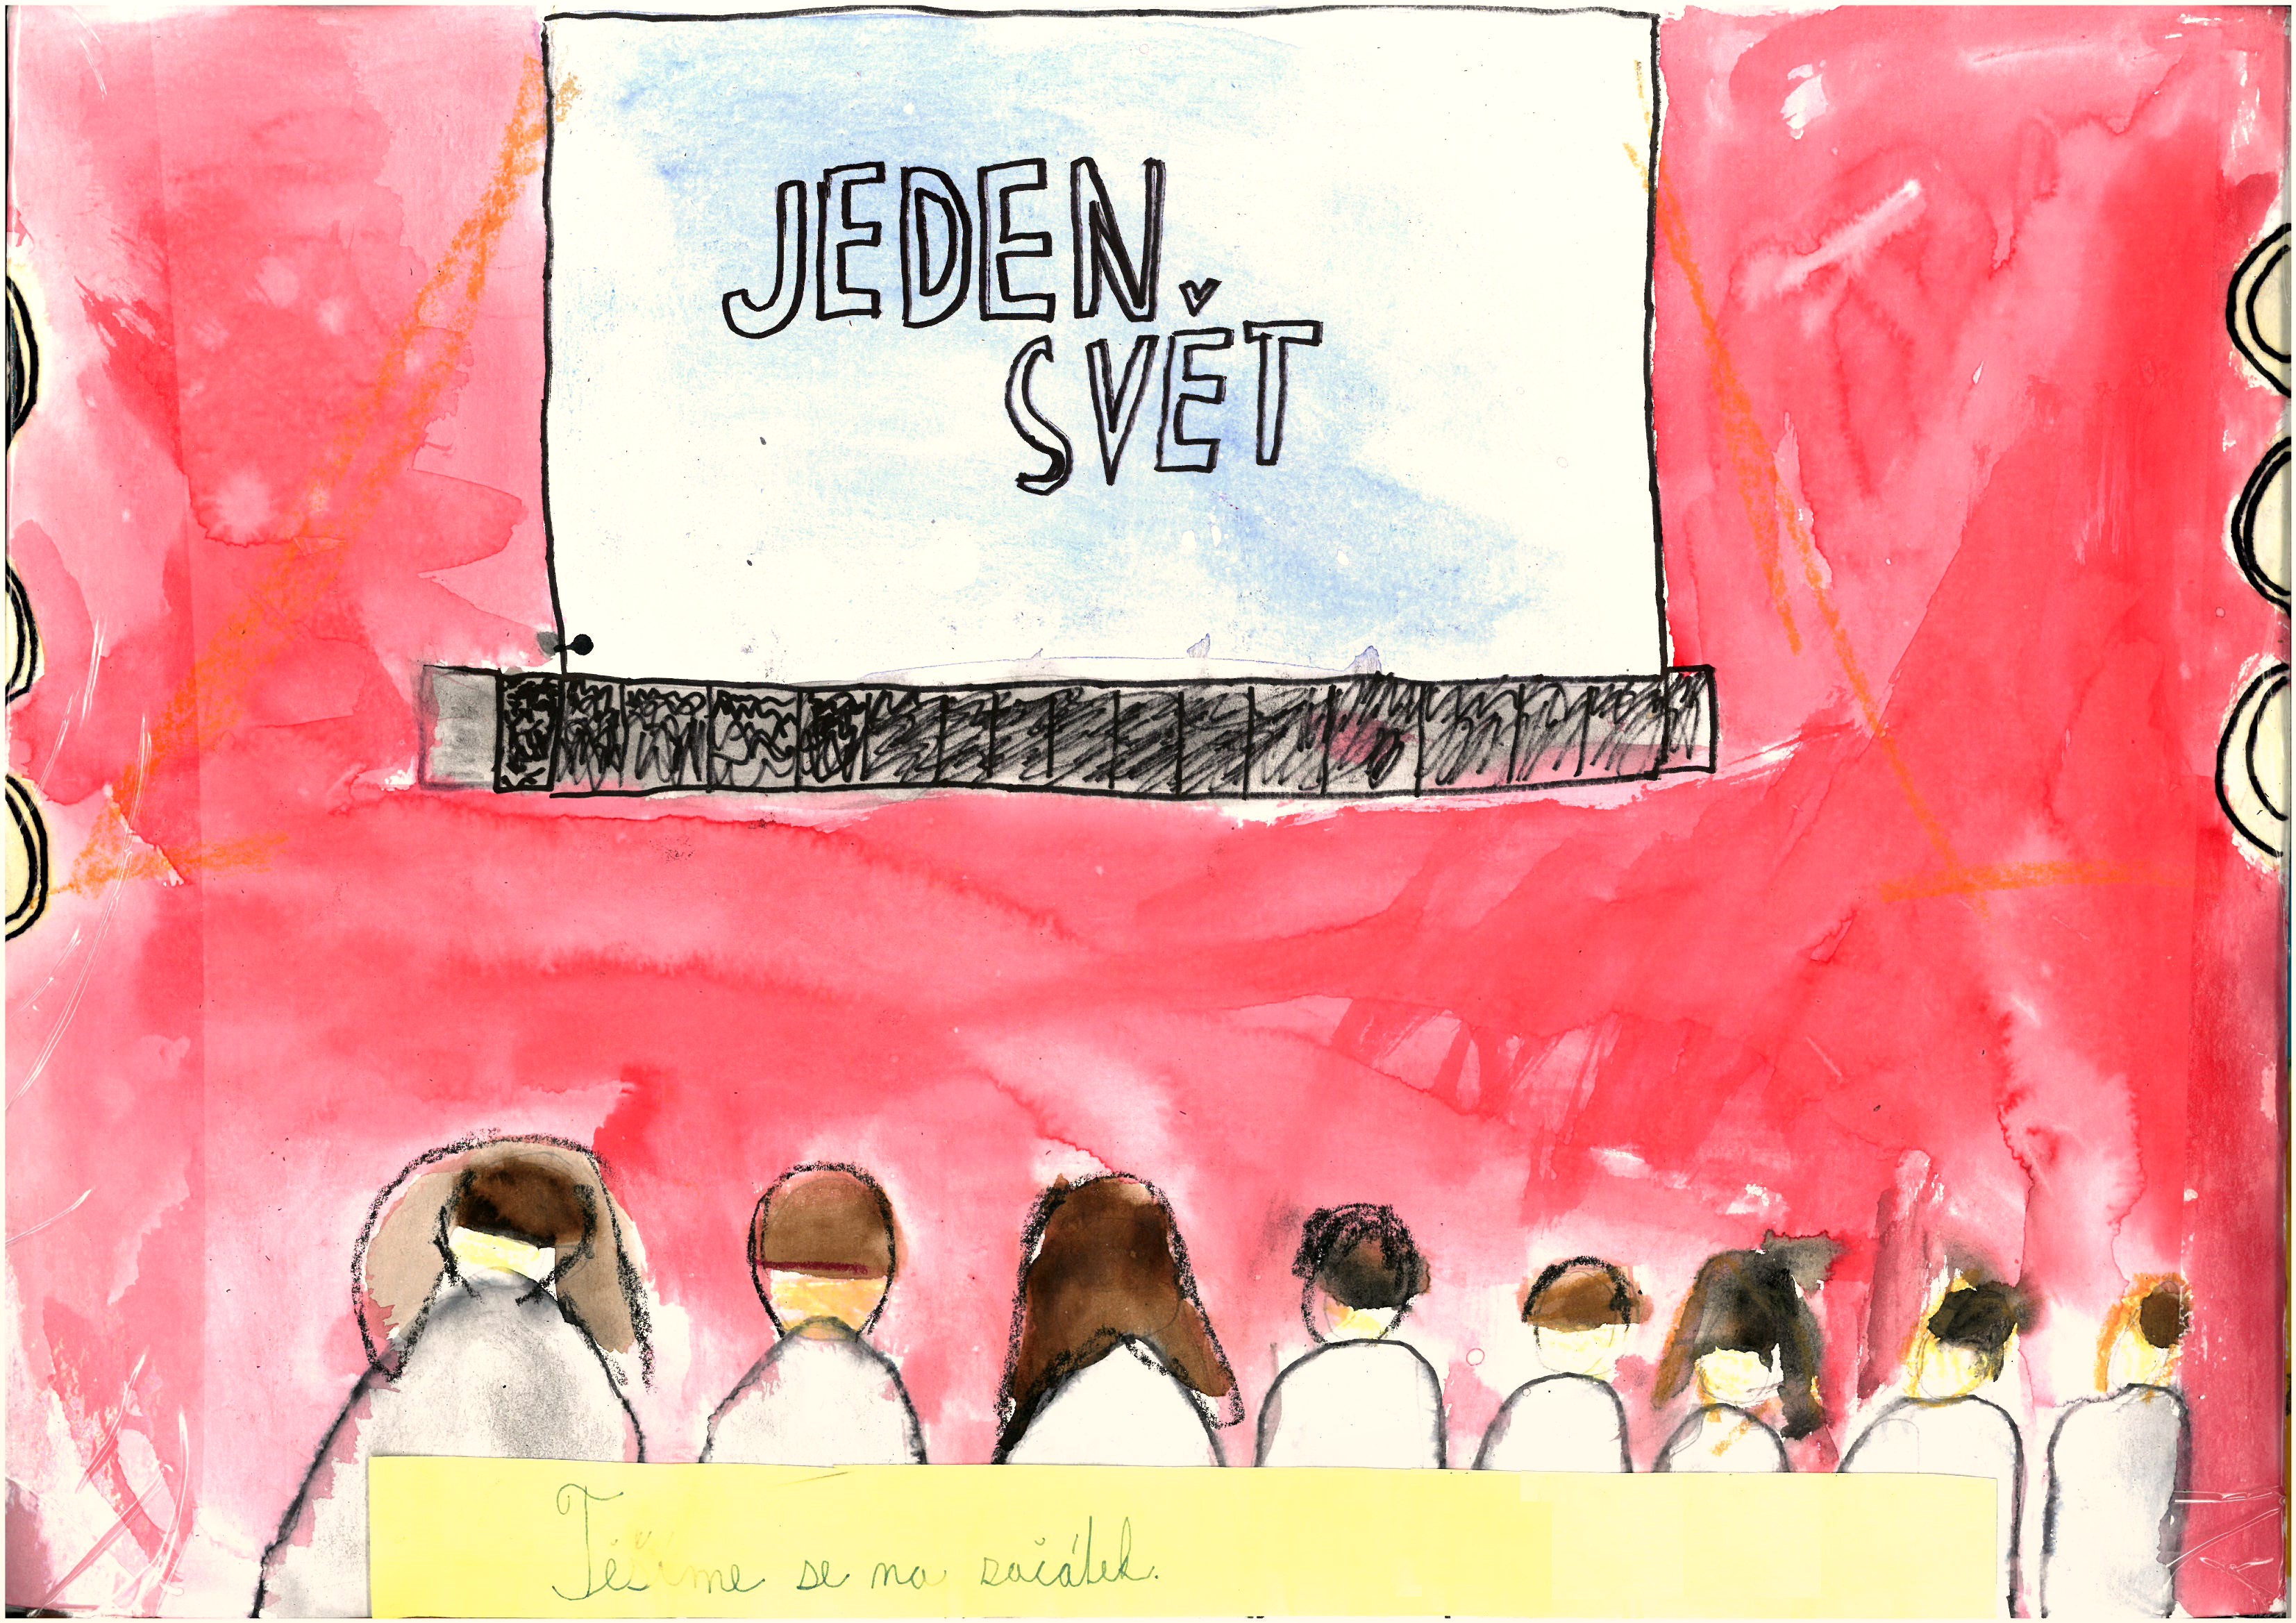 JEDEN
SVĚT
Těšíme se na začátek.